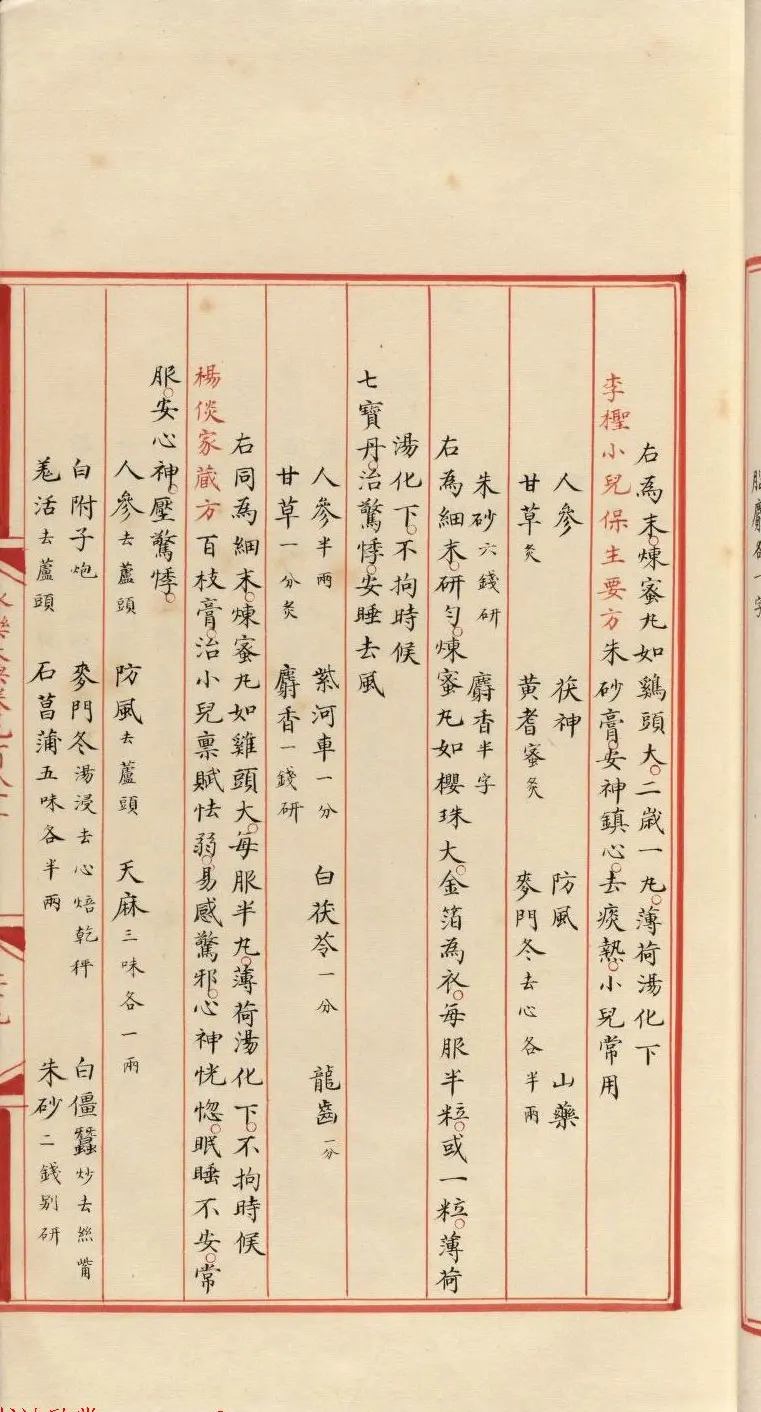 右為末。煉蜜丸如鷄頭大。二歲一丸。薄荷湯化下
李檉小兒保生要方朱砂膏。安神鎮心。去痰熱。小兒常用
人參 茯神 防風 山藥
甘草炙 黃耆蜜炙 麥門冬去心各半兩
朱砂六錢研 麝香半字
右為細末。研勻。煉蜜丸如櫻珠大。金箔為衣。每服半粒。或一粒。薄荷
湯化下。不拘時候
七寶丹。治驚悸。安睡去風
人參半兩 紫河車一分 白茯苓一分 龍齒一分
甘草一分炙 麝香一錢研
右同為細末。煉蜜丸如雞頭大。每服半丸。薄荷湯化下。不拘時候
楊倓家藏方百枝膏。治小兒稟賦怯弱。易感驚邪。心神恍惚。眠睡不安。常
服。安心神。壓驚悸。
人參去蘆頭 防風去蘆頭 天麻三味各一兩
白附子炮 麥門冬湯浸去心焙乾秤 白僵蠶炒去絲觜
羗活去蘆頭 石菖蒲五味各半兩 朱砂二錢别研